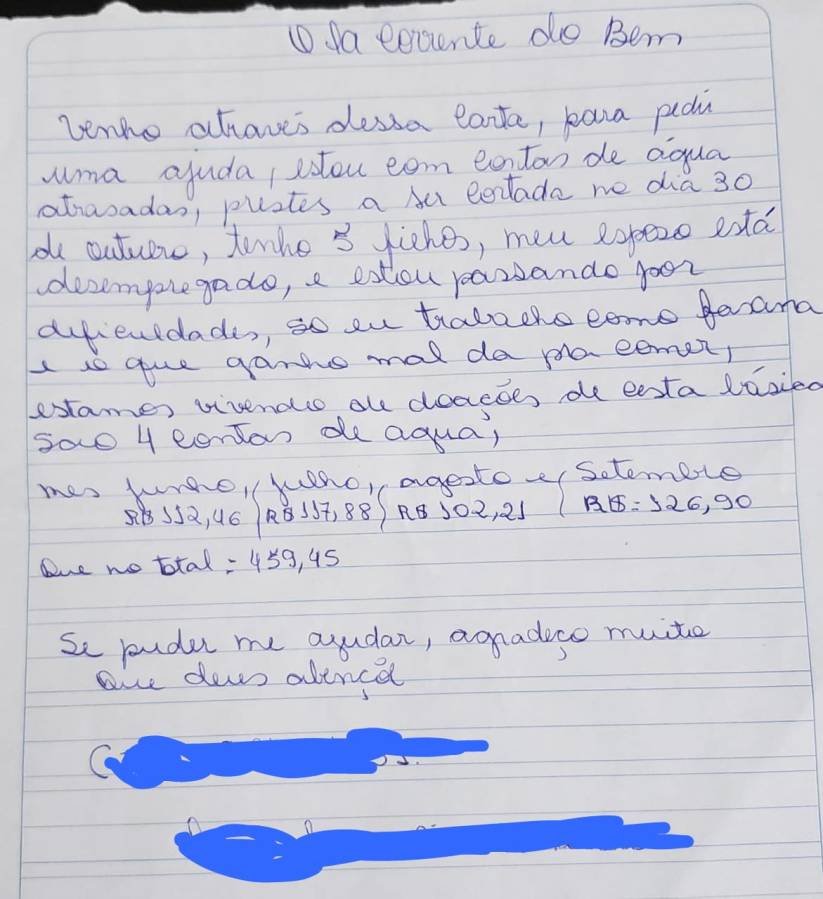 O Sa corrente do Bem
Venho através dessa carta, para pedi
uma ajuda, estou com contas de água
atrasadas, prestes a ser cortada no dia 30
de outubro, tenho 3 filhos, meu esposo está
desempregado, e estou passando por
dificuldades, so eu trabalho como
e io que ganho mal da pra comer,
estamos vivendo de doações de cesta básica
são 4 contas de agua,
mes junho, julho, agosto e, Setembro
R$ 112,46 R$ 117,88 R$ 102,21 R$ = 126,90
Que no total = 459,45
Se puder me ajudar, agradeço muito
Que deus abençoê